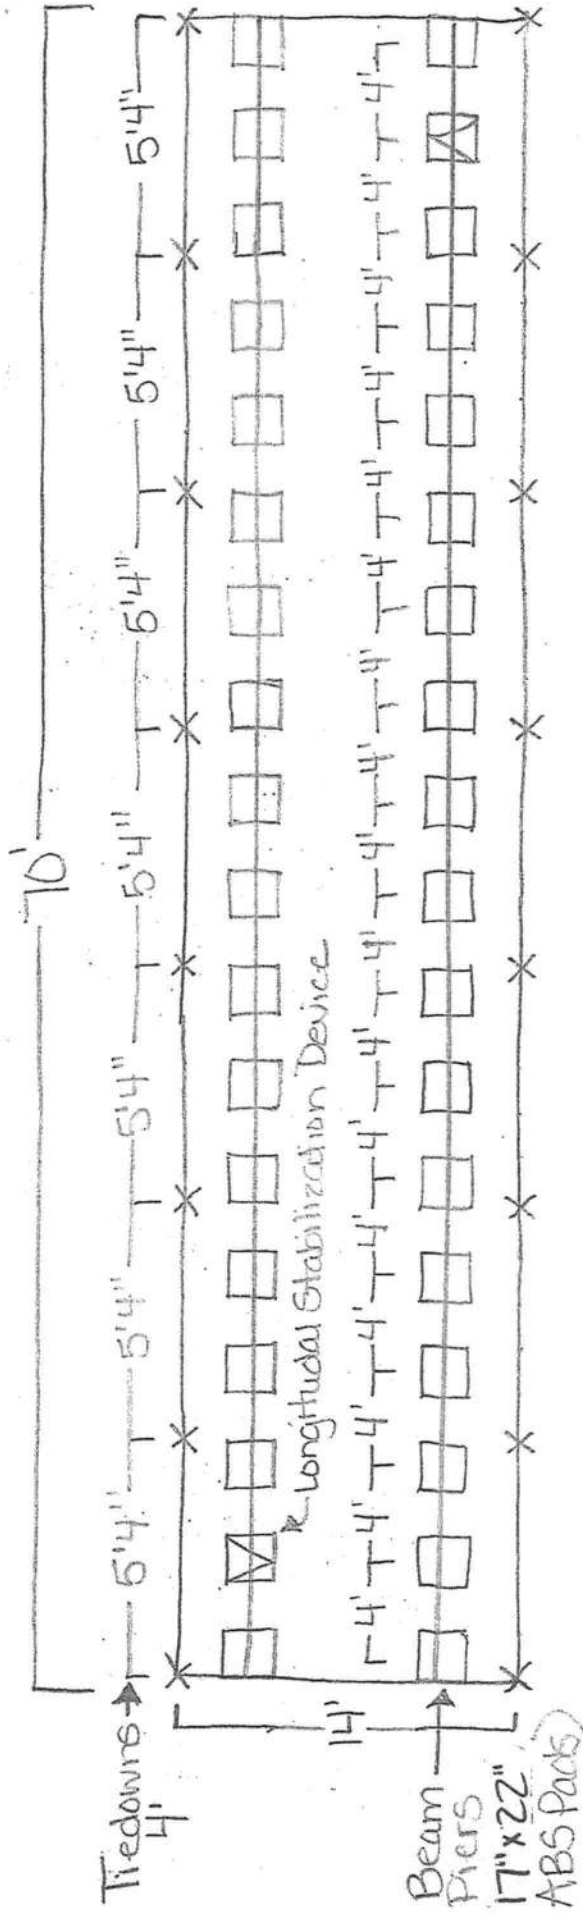 70'
Tiedowns 5'4" 5'4" 5'4" 5'4" 5'4" 5'4" 5'4"
4'
Longitudal Stabilization Device
14'
4' 4' 4' 4' 4' 4' 4' 4' 4' 4' 4' 4' 4' 4' 4' 4' 4'
Beam
Piers
17"x22"
ABS Pads)